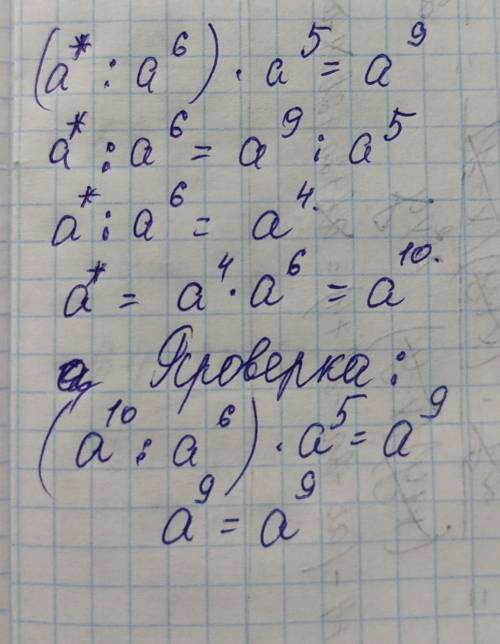 (a* : a⁶) · a⁵ = a⁹
a* : a⁶ = a⁹ : a⁵
a* : a⁶ = a⁴.
a* = a⁴ · a⁶ = a¹⁰.
Проверка:
(a¹⁰ : a⁶) · a⁵ = a⁹
a⁹ = a⁹